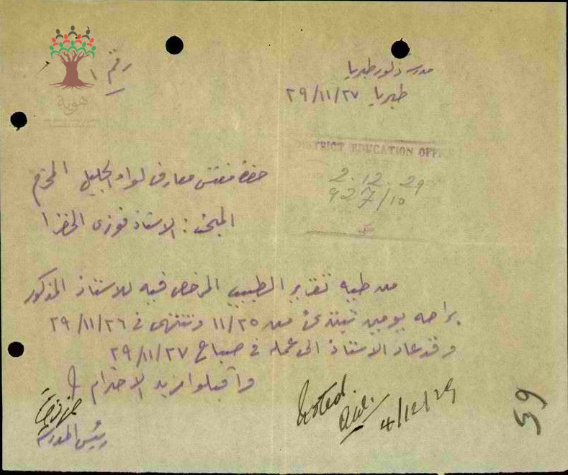 رقم ١
مدرسة ذكور طبريا
طبريا ٢٩/١١/٢٧
DISTRICT EDUCATION OFF
2.12.29
927/10
حضرة مفتش معارف لواء الجليل المحترم
المبحث : الاستاذ فوزي الخضرا
من طيه تقرير الطبيب المرخص فيه للاستاذ المذكور
براحة يومين تبتدئ من ١١/٢٥ وتنتهي في ٢٩/١١/٢٦
وقد عاد الاستاذ الى عمله في صباح ٢٩/١١/٢٧
واقبلوا مزيد الاحترام
Noted
4/12/29
رئيس المدرسة
59
هوية